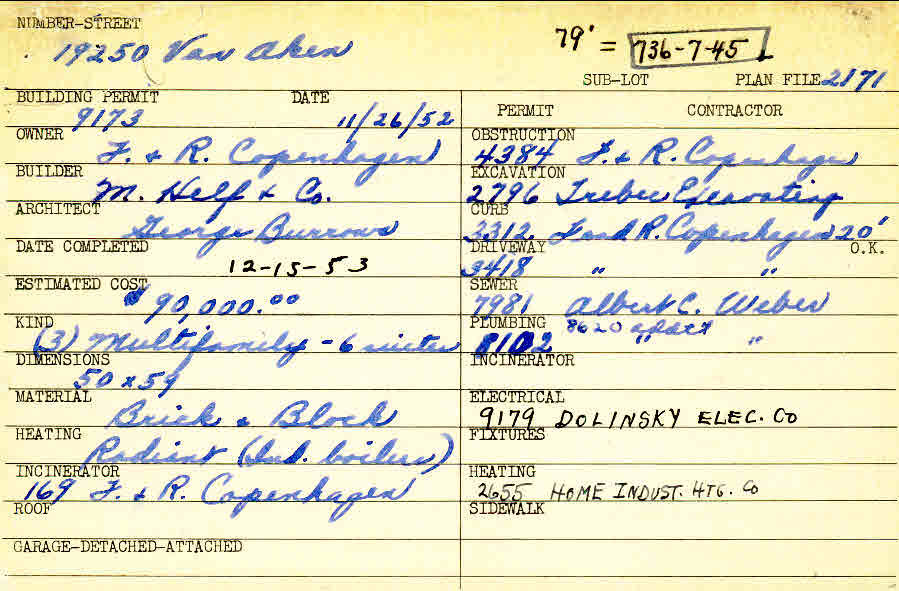 NUMBER-STREET
19250 Van Aken
79' = 736-7-45 L
SUB-LOT PLAN FILE 2171
BUILDING PERMIT DATE
9173 11/26/52
OWNER
F. & R. Copenhagen
BUILDER
M. Helf & Co.
ARCHITECT
George Burrows
DATE COMPLETED
12-15-53
ESTIMATED COST
$90,000.00
KIND
(3) Multifamily - 6 suites
DIMENSIONS
50 x 59
MATERIAL
Brick & Block
HEATING
Radiant (Ind. boilers)
INCINERATOR
169 F. & R. Copenhagen
ROOF
GARAGE-DETACHED-ATTACHED
PERMIT CONTRACTOR
OBSTRUCTION
4384 F. & R. Copenhagen
EXCAVATION
2796 Trebec Excavating
CURB
3312 F and R. Copenhagen 20'
DRIVEWAY O.K.
3418 " "
SEWER
7981 Albert C. Weber
PLUMBING 8620 addt
8102 " "
INCINERATOR
ELECTRICAL
9179 DOLINSKY ELEC. CO
FIXTURES
HEATING
2655 HOME INDUST. HTG. CO
SIDEWALK